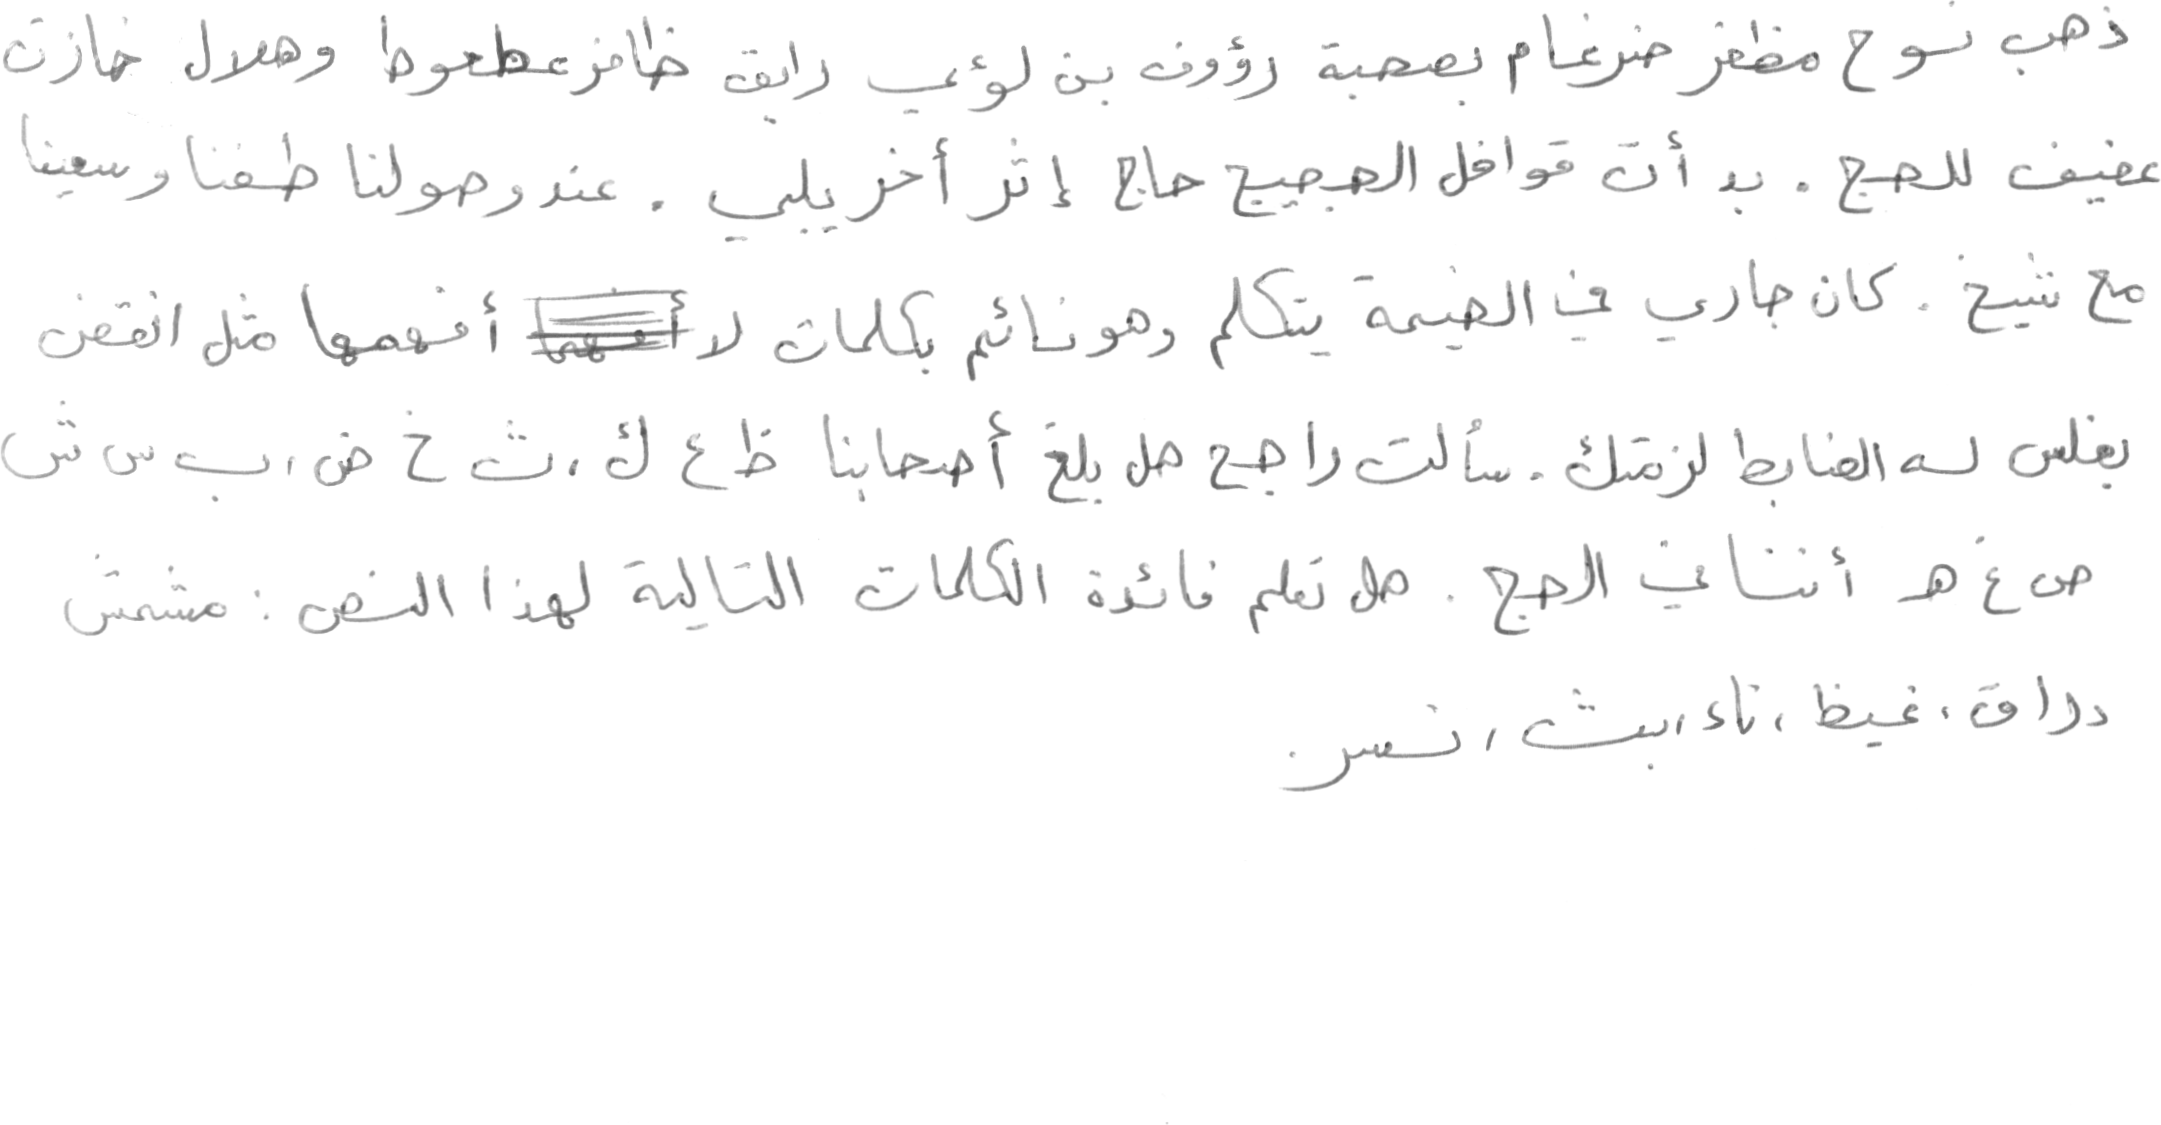 ذهب نوح مظفر ضرغام بصحبة رؤوف بن لؤي رايق ظافر عطعوط وهلال خازن
عفيف للحج . بدأت قوافل الحجيج حاج إثر أخر يلبي . عند وصولنا طفنا وسعينا
مع شيخ . كان جاري في الخيمة يتكلم وهو نائم بكلمات لا أفهمها مثل انقض
بغلس له الضابط لزمتك . سألت راجح هل بلغ أصحابنا ظ ع ك ، ث خ ض ، ب س ش
ص غ هـ أننا في الحج . هل تعلم فائدة الكلمات التالية لهذا النص : مشمش
دراق ، غيظ ، ناء ، ببث ، نسر .